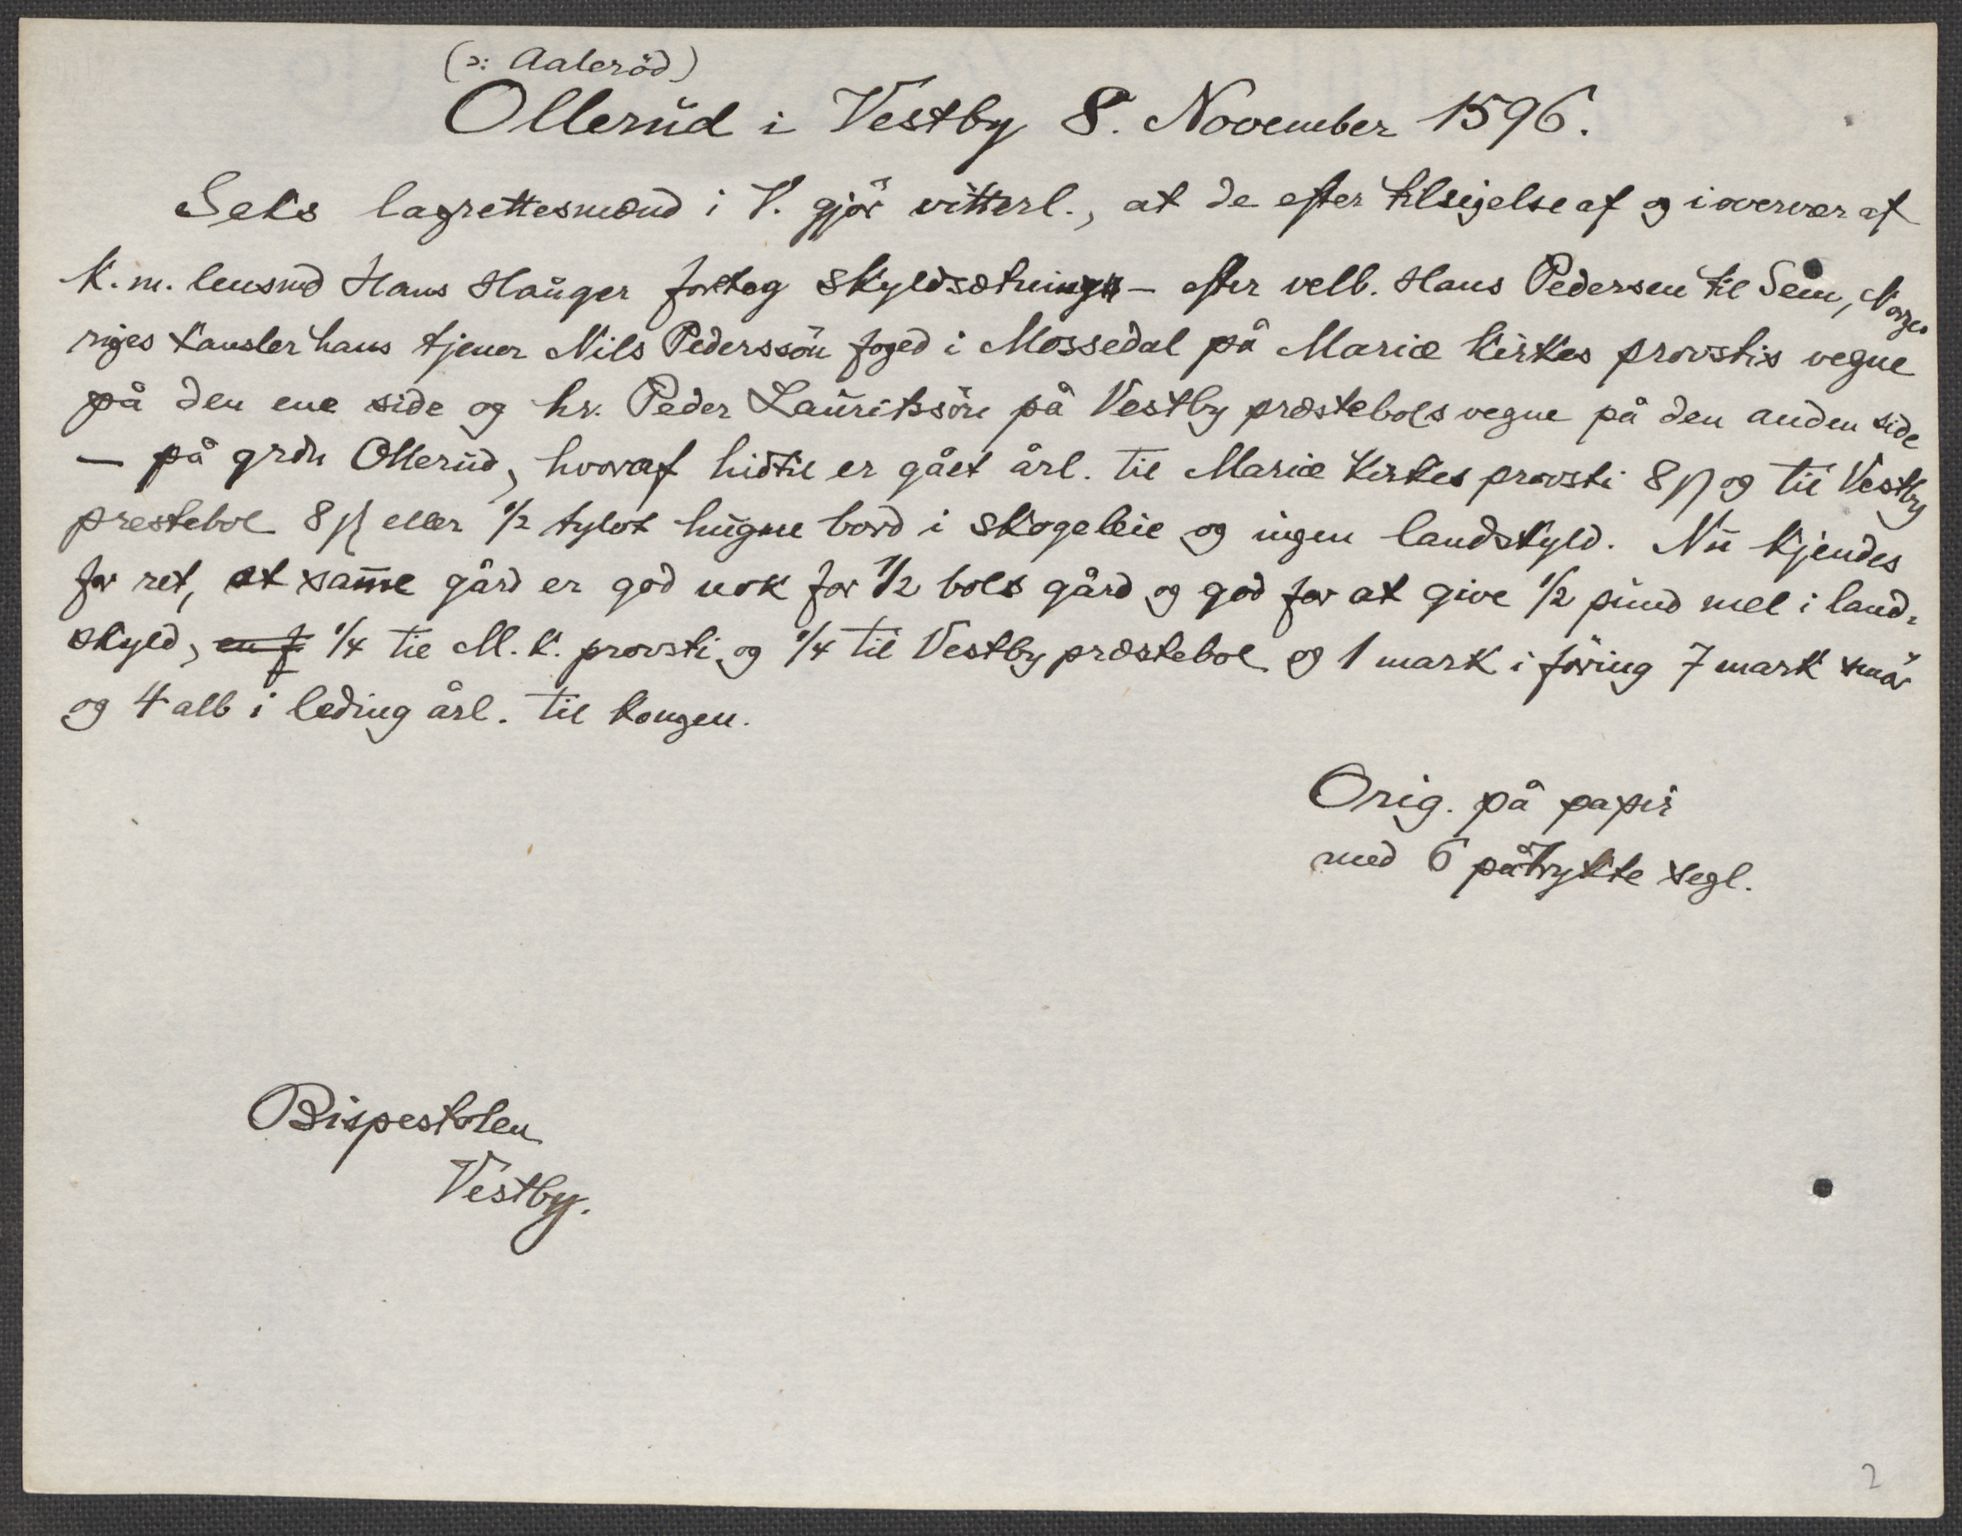 (ɔ: Aaleröd)
Ollerud i Vestby 8. November 1596.
Seks lagrettesmænd i V. gjör vitterl., at de efter tilsigelse af og i overvær af
K. m. lensmd Hans Hauger foretog skyldsætning – efter velb. Hans Pedersen til Sem, Norges
riges kansler hans tjener Nils Pederssön foged i Mossedal på Mariæ kirkes provstis vegne
på den ene side og hr. Peder Lauritssön på Vestby præstebols vegne på den anden side
– på grdn Ollerud, hvoraf hidtil er gået årl. til Mariæ Kirkes provsti 8 β og til Vestby
prestebol 8 β eller 1/2 tylvt hugne bord i skogeleie og ingen landskyld. Nu kjendes
for ret, at sam̄e gård er god nok for 1/2 bols gård og god for at give 1/2 pund mel i land-
skyld, en f 1/4 til M. K. provsti og 1/4 til Vestby præstebol og 1 mark i föring 7 mark smör
og 4 alb i leding årl. til kongen.
Orig. på papir
med 6 påtrykte segl.
Bispestolen
Vestby.
2